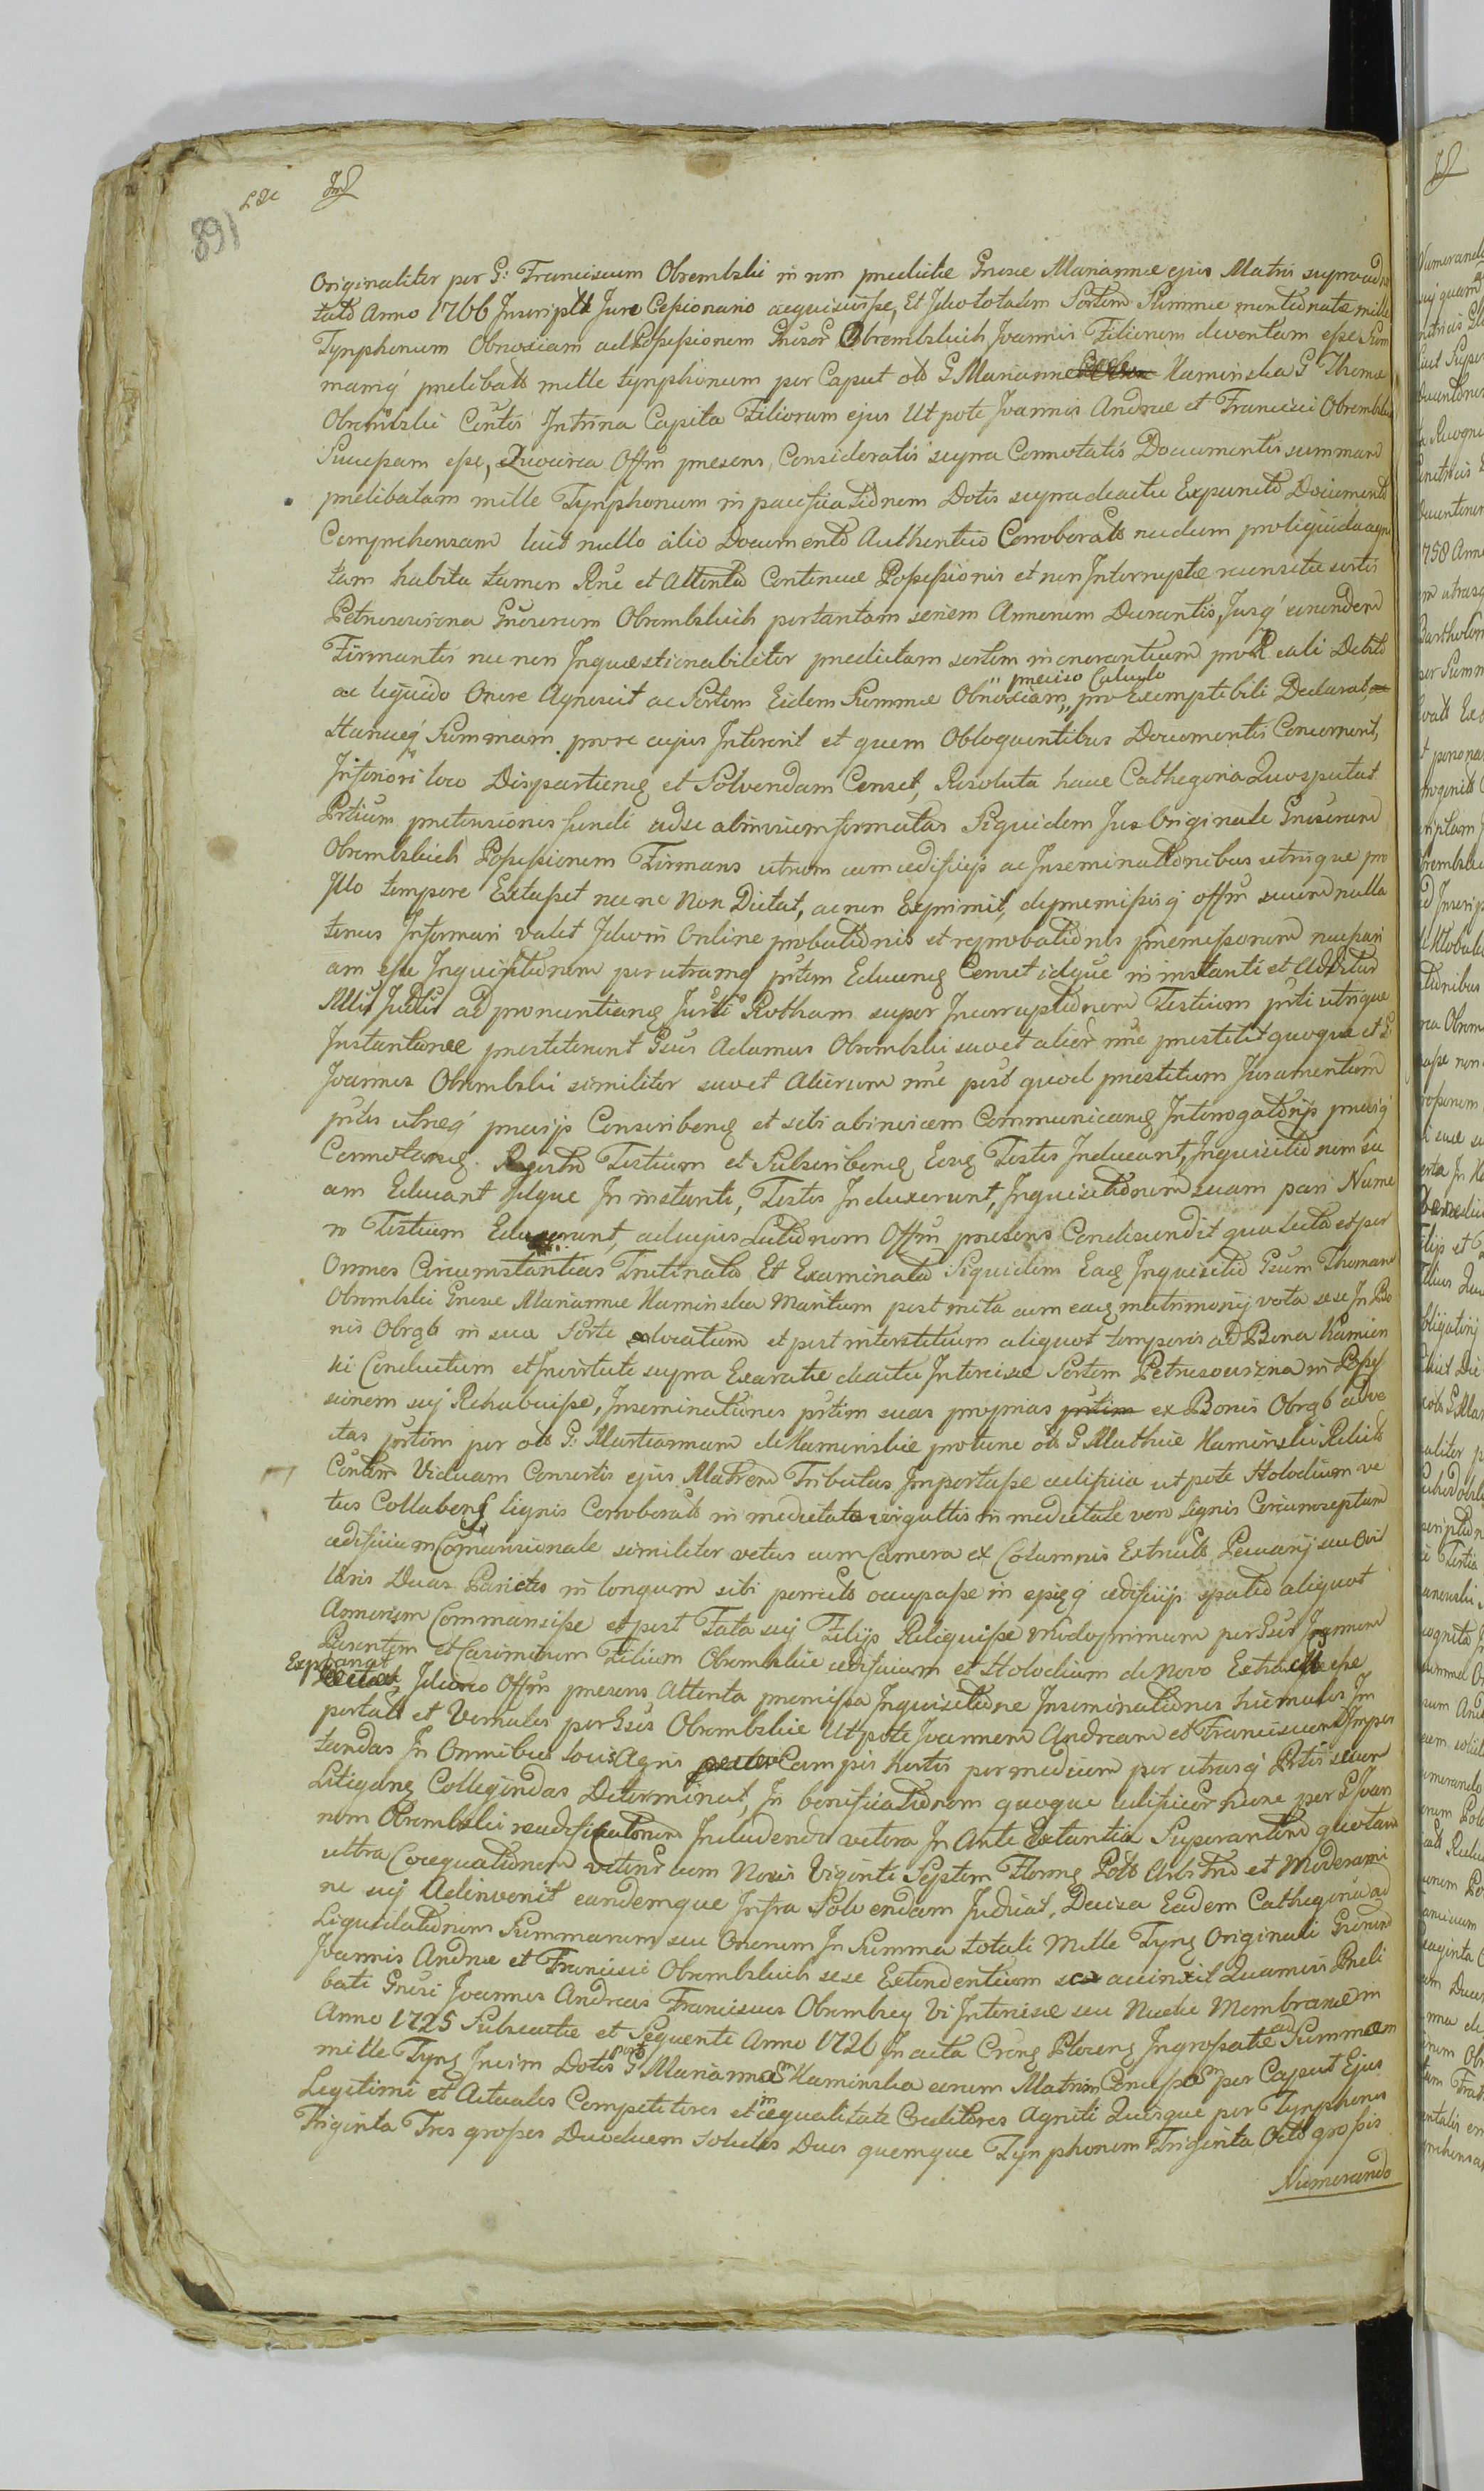 891
Originaliter per G: Franciscum Obrembski in rem predictæ Gnosæ Mariannæ ejus Matris supra ad no
tato Anno 1766 Inscripto Jure Cessionario acquisivisse, Et Ideo totalem Sortem Summæ mentionatæ mille
Tynphonum Obnoxiam ad Possessionem Gnosor Obrembskich Joannis Filiorum deventam esse Sum
mamq prelibato mille tynphonum per Caput olo G Mariannæ Kaminska G Thomæ
Obrembski Contis In trina Capita Filiorum ejus Ut pote Joannis Andreæ et Francisci Obrembskie
Succesam esse, Quocirca Offm presens, Consideratis supra Connotatis Documentis summam
prelibatam mille Tynphonum in pacificationem Dotis supra de actu Expuncto Documento
Comprehensam licet nullo alio Documento Authentico Corroborato nudum pro liquida
tam habita tamen Rne et Attento Continuæ Possessionis et non Interruptæ recensitæ sortis
Petrusowizna Gnosorum Obrembskich per tantam seriem Annorum Durantis, Jusq eorundem
Firmantis nec non Inquæstionabiliter predictam sortem in onerantium pro Reali Debito
preciso Calculo
ac liquido Onere Agnoscit ac Sortem Eidem Summæ Obnoxiam,, pro Exemptibili Declarat,
Hancq Summam prove cujus Interent et quem Obloquentibus Documentis Concernent,
Inferiori loco Dispartiend et Solvendam Censet, Resoluta hacce Cathegoria Quosputat
Prtium pretensiones fundi adse abinvicem formatas Siquidem Jus Originale Gnosorum
Obrembskich Possessionem Firmans utrum cum ædificijs ac Inseminationibus utrisque pro
Illo tempore Extasset nec ne Non Dictat, ac non Exprimit, depremissisq offm suum nulla
tenus Informari valet Ideo in Ordine probationis et reprobationis premissorum
am esse Inquisitionem per utramq prtem Educend Censet idque in instanti et
ad pronuntiand Jurti Rotham super Incorruptionem Testium prti utrique
Instantaneæ prestiterunt Gsus Adamus Obrembski suo et alior nne prestitit quoque et G
Joannes Obrembski similiter suo et Aliorum nne post quod prestitum Juramentum
prtes utreq precijs Conscribend et sibi abinvicem Communicand Interrogatorijs
Connotand Regestro Testium et Subscribend Eosq Testes Inducant, Inquisitionem su
am Educant Idque In instanti, Testes Induxerunt, Inquisitionem suam pari Nume
ro Testium Eduxerunt, ad cujus Lectionem Offm presens Condiscendit qua lecta et per
Omnes Circumstantias Trutinata Et Examinata Siquidem Eaq Inquisitio Gsum Thomam
Obrembski Gnosæ Mariannæ Kaminska Maritum post inita cum eaq matrimonij vota sese In Bo
nis Obrąb in sua Sorte locatum et post interstitium aliquot temporis ad Bona Kamien
ki Conductum et In virtute supra Exaratæ de actu Intercisæ Sortem Petrusowizna in Posses
sionem sui Rehabuisse, Inseminationes prtim suas proprias ex Bonis Obrąb adve
ctas prtim per olo G: Martiannam de Kaminskie protunc olo G Mathiæ Kaminski Relicto
Contem Viduam Consortis ejus Matrem Tributas Importasse ædificia ut pote Holodium ve
tus Collabens lignis Corroborato in medietate virgultis in medietate vero lignis Circumseptum
ædificium Comansionale similiter vetus cum Camera ex Columnis Extructo, Pecuarij seu Ovi
laris Duas Parietes in longum sibi porrecto occupasse in ejsq ædificijs spatio aliquot
Annorum Commansisse et post Fata suj Filijs Reliquisse Modo primum per Gsus Joannem
Parentem et Casimirum Filium Obrembskie ædificium et Holodium de Novo Extructa esse
Explanat, Ideirco Offm presens Attenta premissa Inquisitione Inseminationes hiemales Im
portatas et Vernales per Gsos Obrembskie Ut pote Joannem Andream et Franciscum Impor
tandas In Omnibus locis Agris Campis hortis per medium per utrasq Prtes
Litigand Collegendas Determinat, In bonificationem quoque ædificior hunc per G Joan
nem Obrembski reædificatorum Includendo vetera In Ante Extantia Superantem quotam
ultra Coequationem veterum cum Novis Viginti Septem Floreng Polo Arbitrio et Moderami
ne suj Adinvenit eandemque Infra Solvendam Judicat, Decisa Eadem Cathegoria ad
Liquidationem Summarum seu Onerum In Summa totali Mille Tyng Originali Gnorum
Joannis Andreæ et Francisci Obrembskich sese Extendentium accinxit Quamvis Preli
bati Gnosi Joannes Andreas Franciscus Obrembscy Vi Intercisæ seu Nudæ Membranæ in
Anno 1725 Subscriptæ et Sequenti Anno 1726 In acta Crens Plocens Ingrossatæ ad Summam
mille Tyng Juxim Dotis post G Mariannam Kaminska eorum Matrem Concessam per Caput Ejus
Legitimi et Actuales Competitores et in æqualitate Creditores Agniti Quisque per Tynphonos
Triginta Tres grosses Duodecem solidos Duos quemque Tynphonum Triginta Octo grossis
Numerando